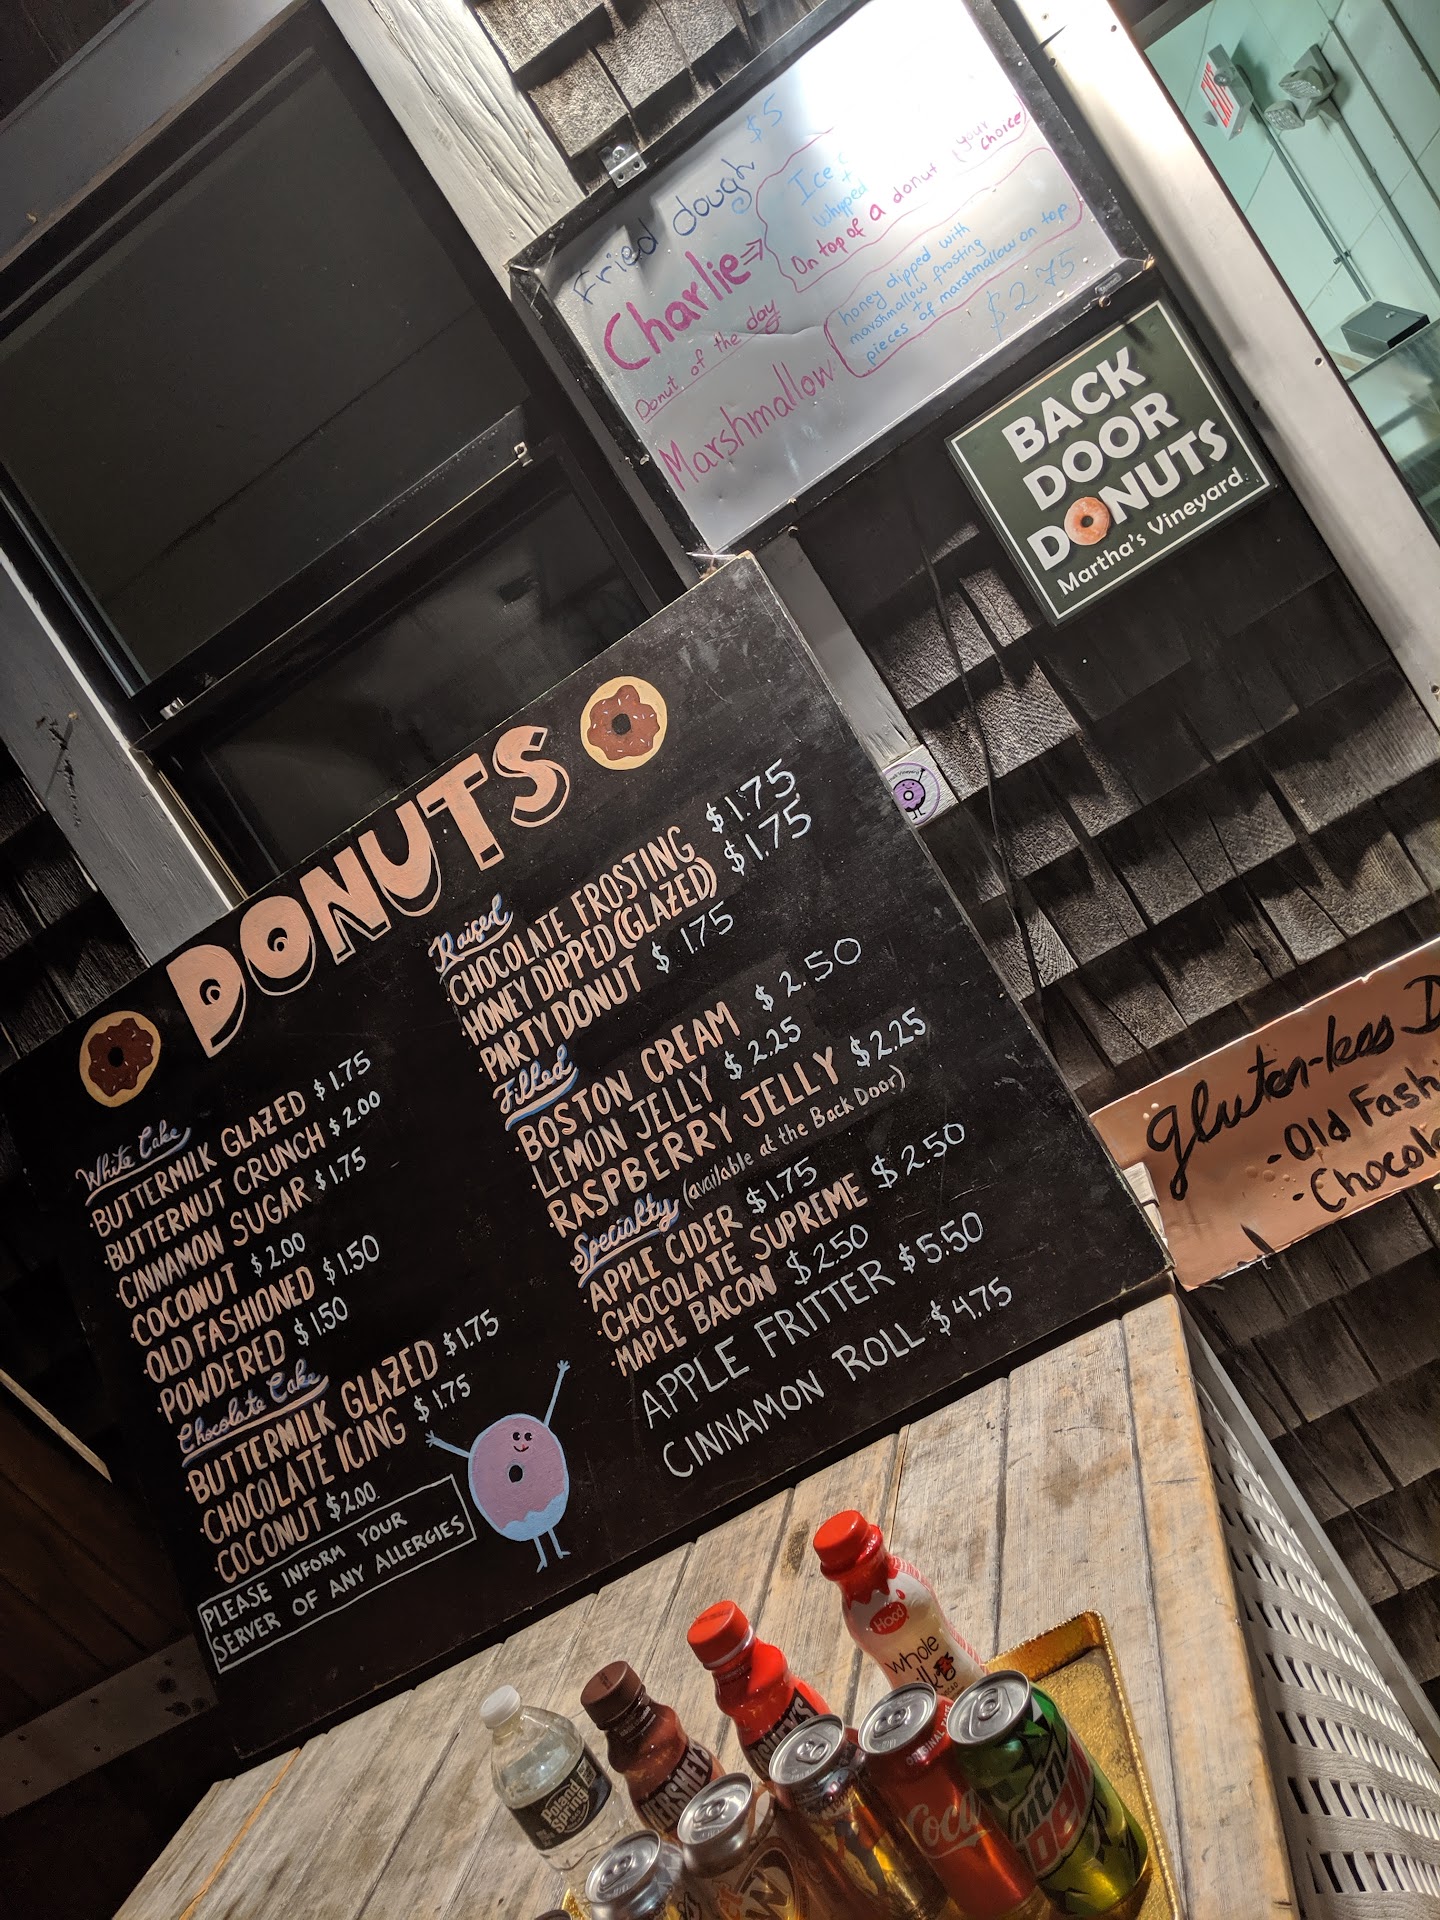 EXIT
Fried dough $5
Charlie ⇒
Ice
whipped
On top of a donut (your choice)
Donut of the day
Marshmallow
honey dipped with
marshmallow frosting
+
pieces of marshmallow on top
$2.75
BACK
DOOR
DONUTS
Martha's Vineyard
DONUTS
White Cake
·BUTTERMILK GLAZED $1.75
·BUTTERNUT CRUNCH $2.00
·CINNAMON SUGAR $1.75
·COCONUT $2.00
·OLD FASHIONED $1.50
·POWDERED $1.50
Chocolate Cake
·BUTTERMILK GLAZED $1.75
·CHOCOLATE ICING $1.75
·COCONUT $2.00
PLEASE INFORM YOUR
SERVER OF ANY ALLERGIES
Raised
·CHOCOLATE FROSTING $1.75
·HONEY DIPPED (GLAZED) $1.75
·PARTY DONUT $1.75
Filled
·BOSTON CREAM $2.50
·LEMON JELLY $2.25
·RASPBERRY JELLY $2.25
Specialty (available at the Back Door)
·APPLE CIDER $1.75
·CHOCOLATE SUPREME $2.50
·MAPLE BACON $2.50
APPLE FRITTER $5.50
CINNAMON ROLL $4.75
gluten-less
-Old Fash
-Chocol
Poland
Spring
HERSHEY'S
HERSHEY'S
Hood
whole
ORIGINAL TASTE
Coca
MTN
DEW